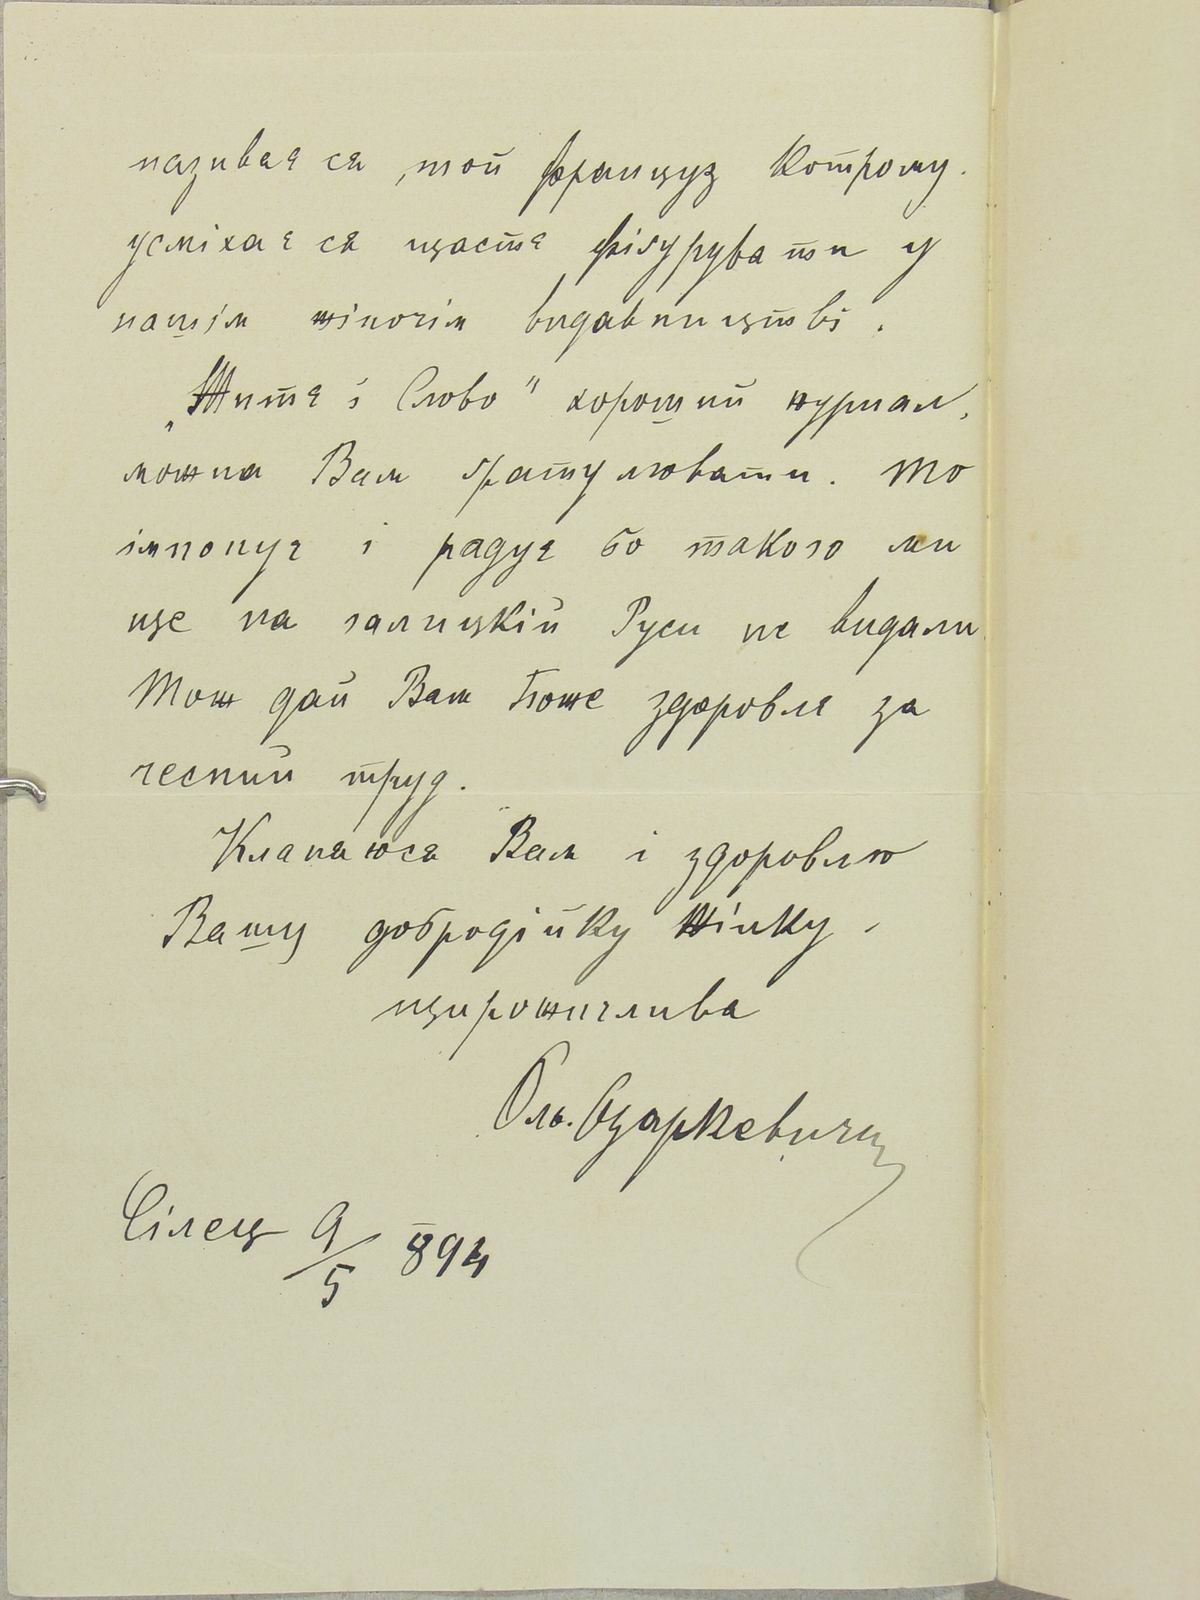 називає ся, той француз котрому
усміхає ся щастє фіґурувати у
нашім жіночім видавництві.
„Житє і Слово" хороший журнал,
можна Вам ґратулювати. То
імпонує і радує бо такого ми
ще на галицкій Руси не видали
Тож дай Вам Боже здоровлє за
чесний труд.
Кланяюся Вам і здоровлю
Вашу добродійку жінку.
щирожичлива
Оль. Озаркевич
Сілец 9/5 894